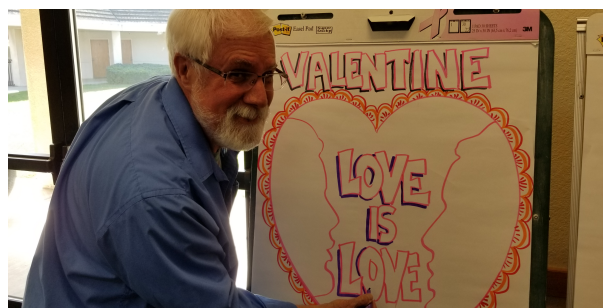 Post-it Easel Pad
3M
VALENTINE
LOVE
IS
LOVE